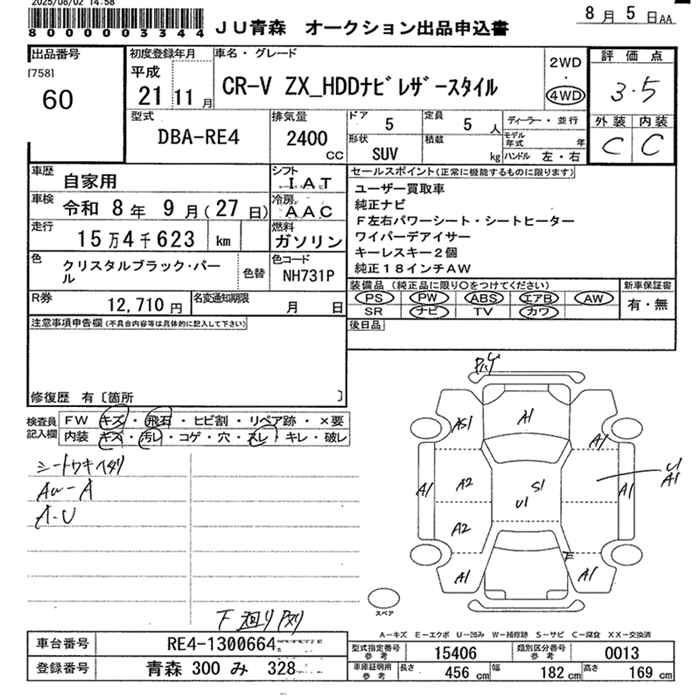 2025/08/02 14:58
8000003344
JU青森 オークション出品申込書
8月5日AA
出品番号
(758)
60
初度登録年月
平成
21 11月
車名・グレード
CR-V ZX_HDDナビレザースタイル
2WD
・
4WD
評価点
3.5
外装 内装
C C
型式
DBA-RE4
排気量
2400
CC
ドア
5
定員
5人
形状
SUV
積載
kg
ディーラー・並行
モデル年式 年
ハンドル 左・右
車歴
自家用
シフト
IAT
車検
令和 8年 9月(27日)
冷房
AAC
走行
15万4千623 km
燃料
ガソリン
色
クリスタルブラック・パール
色替
色コード
NH731P
R券
12,710円
名変通知期限
月 日
セールスポイント(正常に機能するものに限ります)
ユーザー買取車
純正ナビ
F左右パワーシート・シートヒーター
ワイパーデアイサー
キーレスキー2個
純正18インチAW
装備品(純正品に限り○をつけてください)
PS PW ABS エアB AW
SR ナビ TV カワ
新車保証書
有・無
後日品
注意事項申告欄(不具合内容等は具体的に記入して下さい)
修復歴 有〔箇所 〕
検査員記入欄
FW キズ・飛石・ヒビ割・リペア跡・×要
内装 キズ・汚レ・コゲ・穴・スレ・キレ・破レ
シートワキヘタリ
AW-A
A-U
下廻りサビ
A1
AS1
A1
A1
A2
S1
U1
U1
A1
A1
A2
E
A1
A1
スペア
A-キズ E-エクボ U-凹み W-補修跡 S-サビ C-腐食 XX-交換済
車台番号
RE4-1300664
登録番号
青森 300 み 328
型式指定番号
参考
15406
類別区分番号
参考
0013
車庫証明用
参考
長さ
456 cm
幅
182 cm
高さ
169 cm